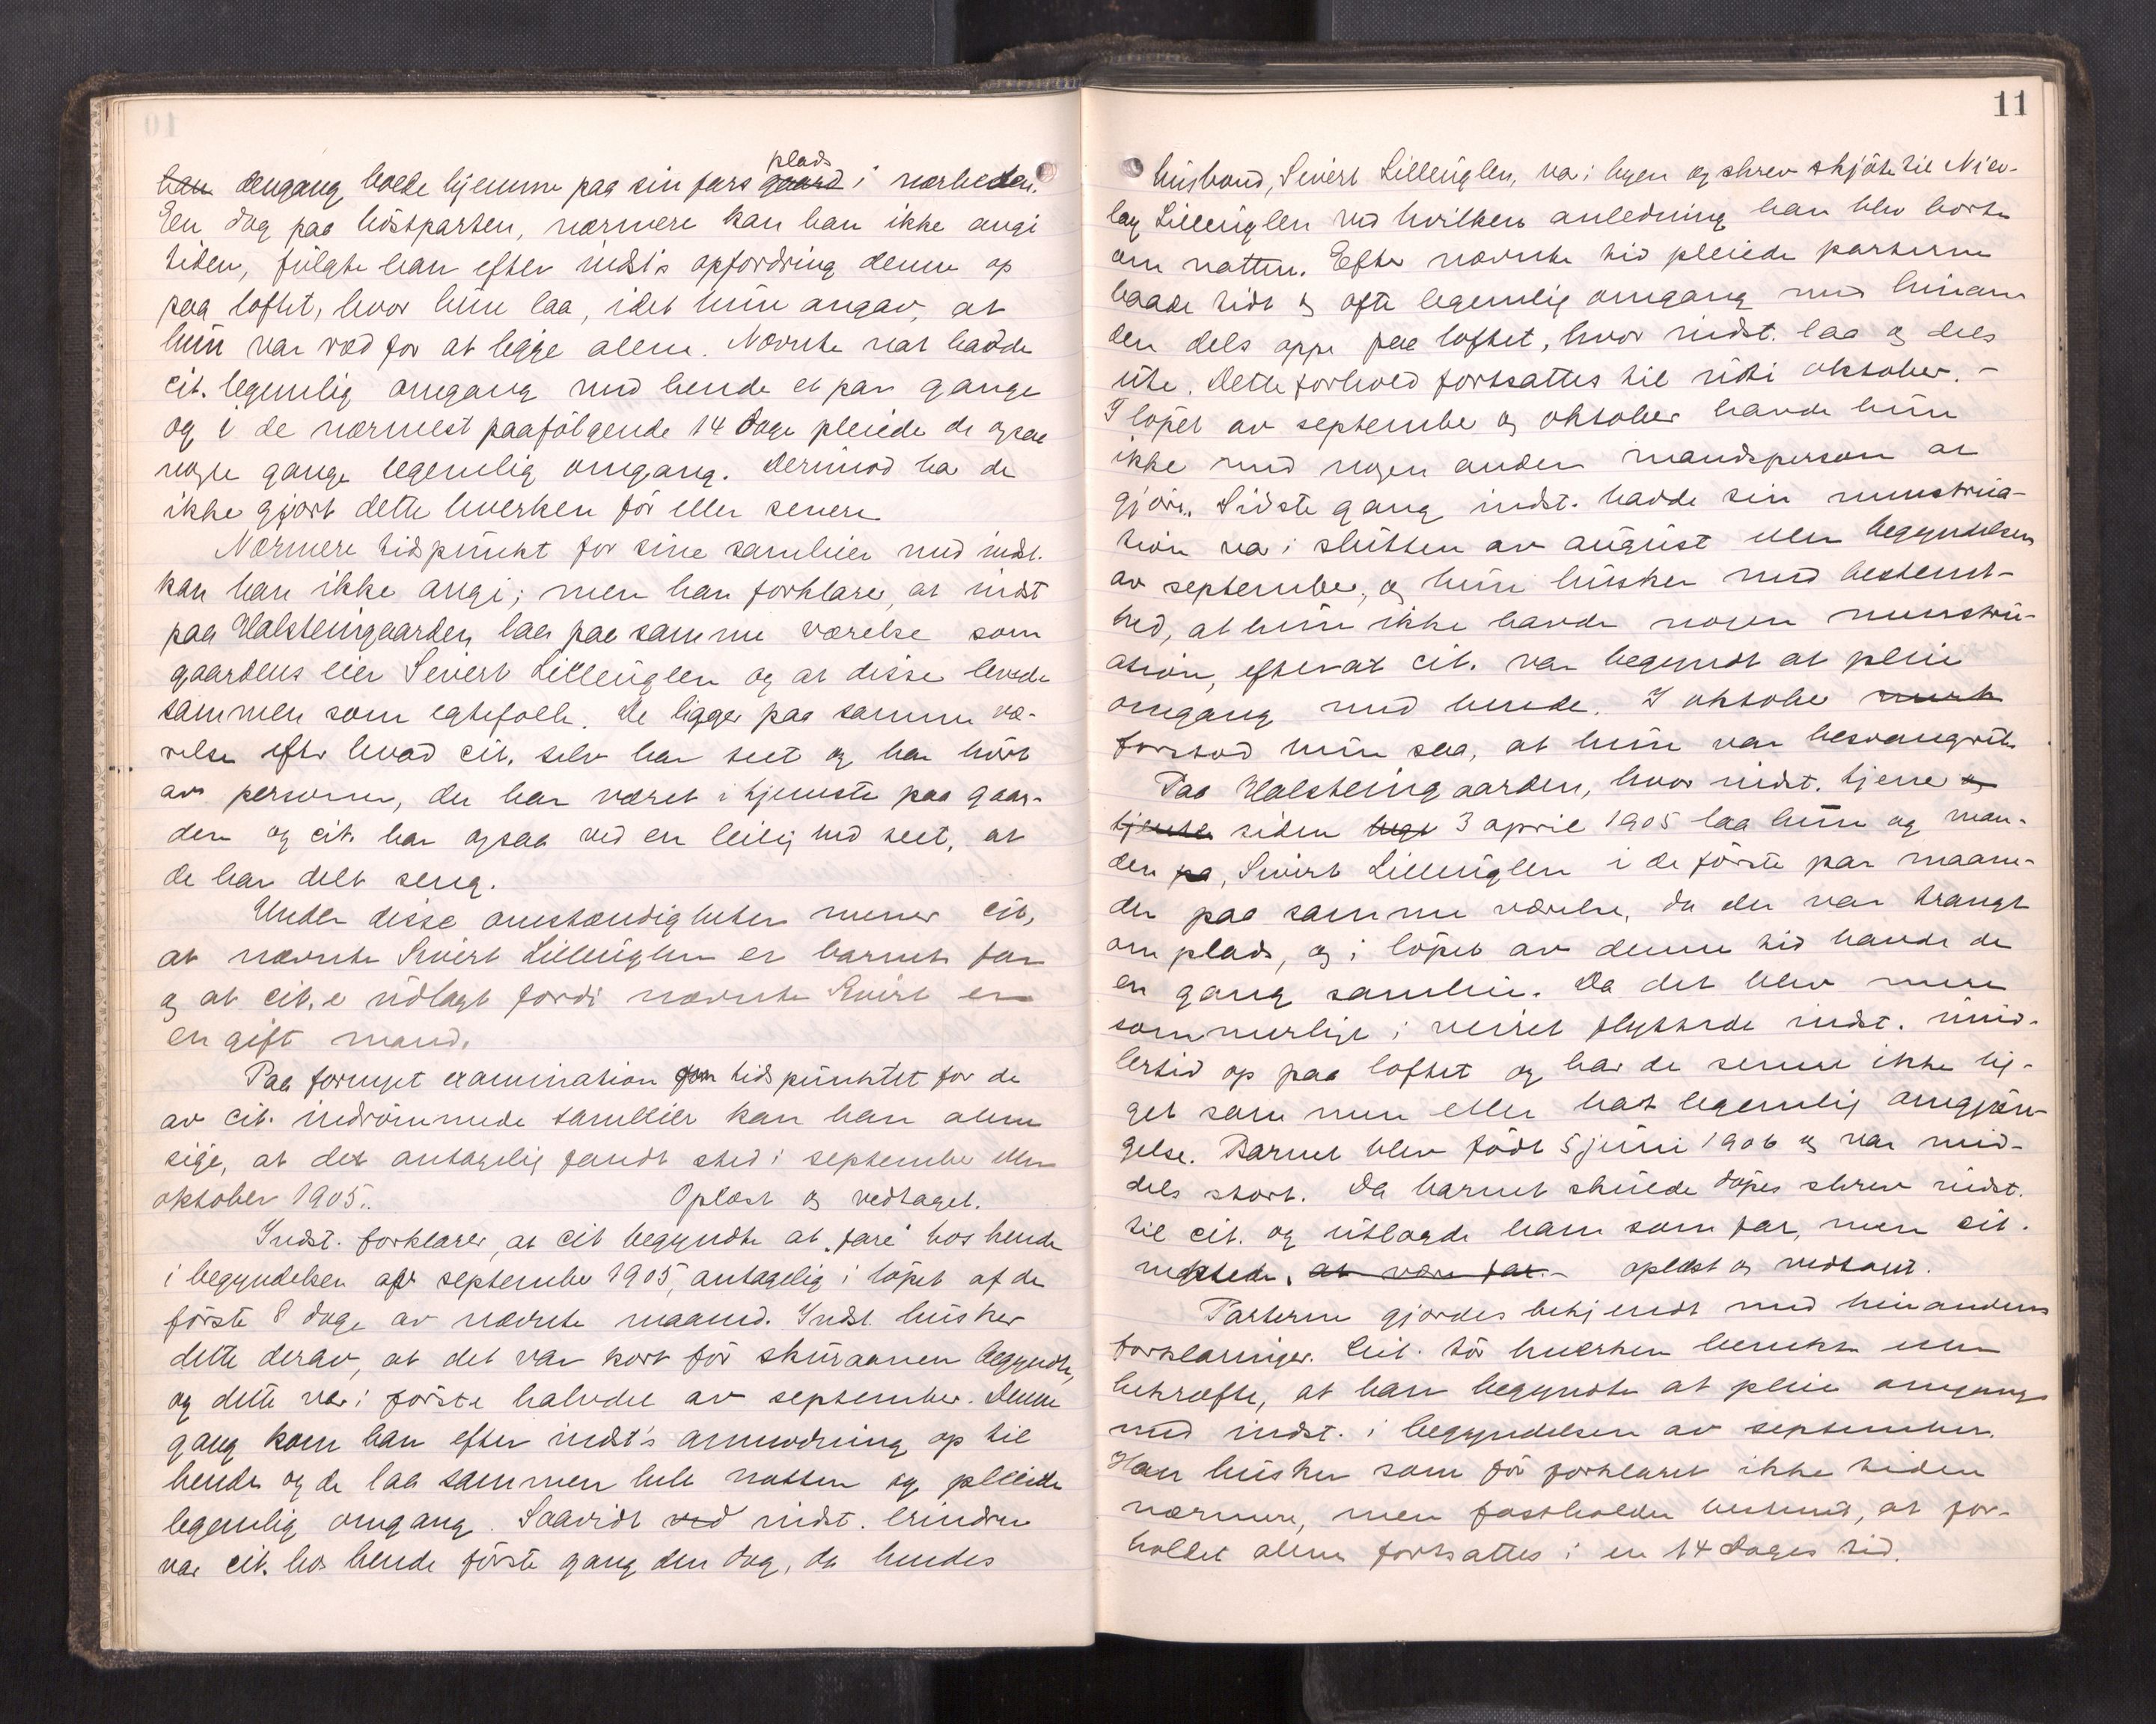 plads
han dengang boede hjemme paa sin fars gaard i nærheden.
Een dag paa höstparten, nærmere kan han ikke angi
tiden, fulgte han efter indst's opfordring denne op
paa loftet, hvor hun laa, idet hun angav, at
hun var ræd for at ligge alene. Nævnte nat hadde
cit. legemlig omgang med hende et par gange
og i de nærmest paafölgende 14 dage pleiede de ogsaa
nogle gange legemlig omgang. Derimod har de
ikke gjort dette hverken för eller senere.
Nærmere tidspunkt for sine samleier med indst.
kan han ikke angi; men han forklarer, at indst
paa Halsteingaarden laa paa samme værelse som
gaardens eier Severt Lilleuglen og at disse levede
sammen som egtefolk. De ligger paa samme væ-
relse efter hvad cit. selv har seet og har hört
av personer, der har været i tjeneste paa gaar-
den og cit. har ogsaa ved en leilighed seet, at
de har delt seng.
Under disse omstændigheter mener cit,
at nævnte Sivert Lilleuglen er barnets far
og at cit. er udlagt fordi nævnte Sivert er
en gift mand.
Paa fornyet examination om tidspunktet for de
av cit. indrömmede samleier kan han alene
sige, at det antagelig fandt sted i september eller
oktober 1905. Oplæst og vedtaget.
Indst. forklarer, at cit begyndte at "fare" hos hende
i begyndelsen af september 1905, antagelig i löpet af de
förste 8 dage av nævnte maaned. Indst. husker
dette derav, at det var kort för skuraanen begyndte,
og dette var i förste halvdel av september. Denne
gang kom han efter indst's anmodning op til
hende og de laa sammen hele natten og pleiede
legemlig omgang. Saavidt ved indst. erindrer
var cit. hos hende förste gang den dag, da hendes
11
husbond, Sivert Lilleuglen, var i byen og skrev skjöte til Nico-
lay Lilleuglen ved hvilken anledning han blev borte
om natten. Efter nævnte tid pleiede parterne
baade tidt og ofte legemlig omgang med hinan
den dels oppe paa loftet, hvor indst. laa og dels
ute. Dette forhold fortsattes til uti oktober. -
I löpet av september og oktober havde hun
ikke med nogen anden mandsperson at
gjöre. Sidste gang indst. hadde sin menstrua-
tion var i slutten av august eller begyndelsen
av september, og hun husker med bestemt-
hed, at hun ikke havde nogen menstru-
ation, efterat cit. var begyndt at pleie
omgang med hende. I oktober
forstod hun saa, at hun var besvangret.
Paa Halsteingaarden, hvor indst. tjener og
tjente siden 3 april 1905 laa hun og man-
den pa, Sivert Lilleuglen i de förste par maane-
der paa samme værelse, da der var trangt
om plads, og i löpet av denne tid havde de
en gang samleie. Da det blev mere
sommerligt i veiret flyttede indst. imid-
lertid op paa loftet og har de senere ikke lig-
get sammen eller hat legemlig omgjæn-
gelse. Barnet blev födt 5 juni 1906 og var mid-
dels stort. Da barnet skulde döpes skrev indst.
til cit. og utlagde ham som far, men cit.
negtede. at være far. - oplæst og vedtaget.
Parterne gjordes bekjendt med hinandens
forklaringer. Cit. tör hverken benekte eller
bekræfte, at han begyndte at pleie omgang
med indst. i begyndelsen av september.
Han husker som för forklaret ikke tiden
nærmere, men fastholder bestemt, at for-
holdet alene fortsattes i en 14 dages tid.